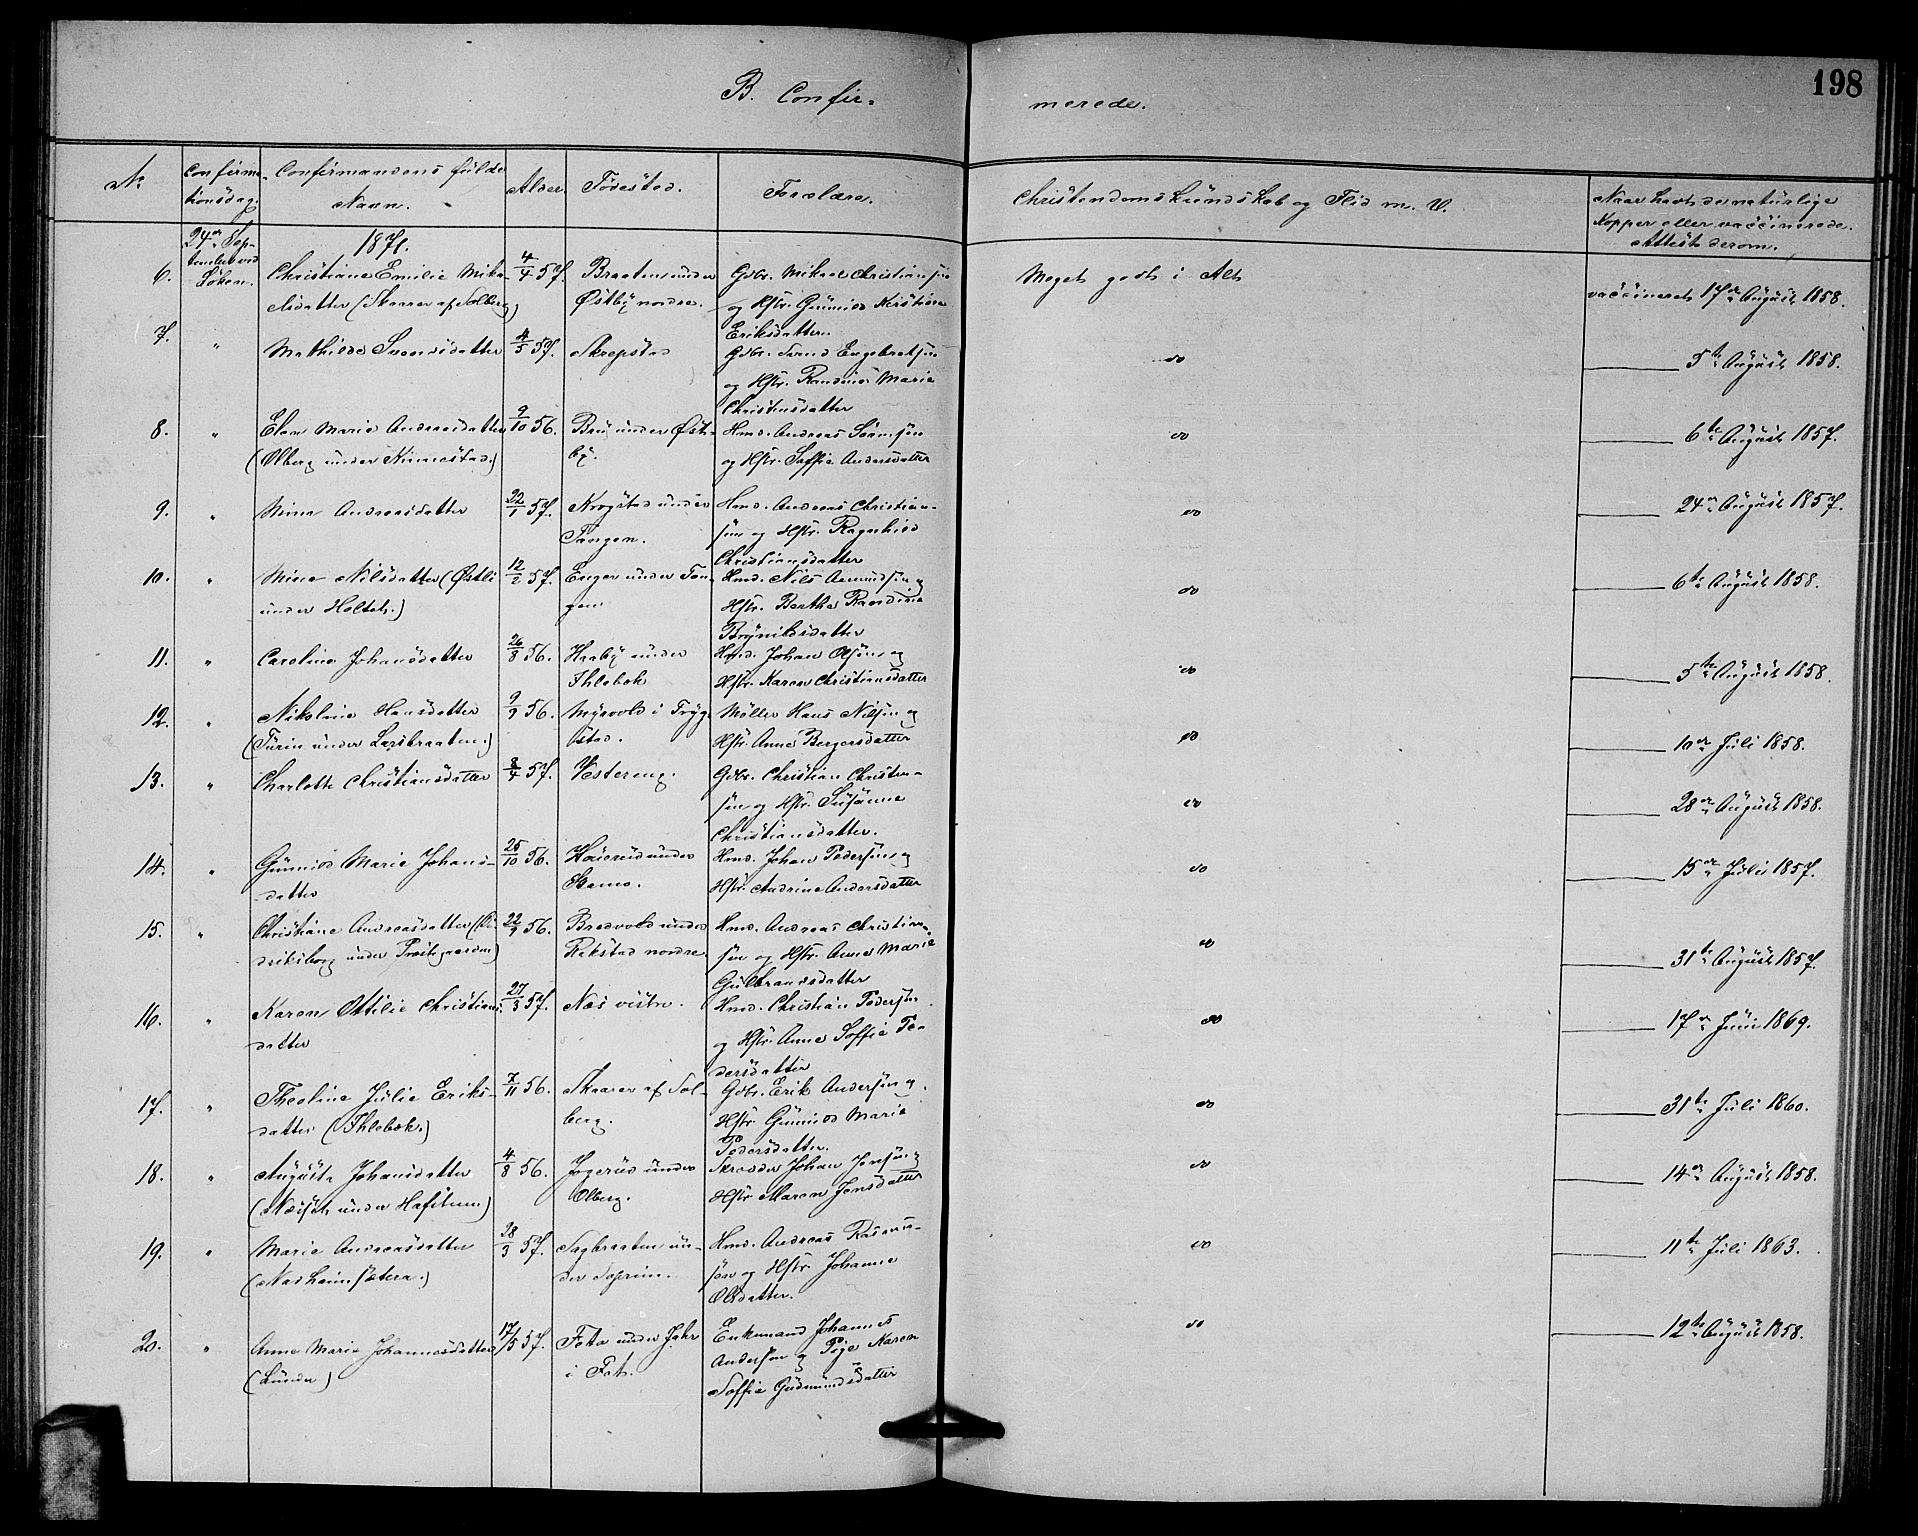 198
B. Confir-
merede.
No
Confirma-
tionsdag.
Confirmandens fulde
Navn.
Alder.
Fødested.
Forældre.
Christendomskundskab og Flid m. V.
Naar havt de naturlige
Kopper eller vaccinerede.
Attest derom.
1871.
24de Sep-
tember ved
6.
Christiane Emilie Mika-
elsdatter (Skaarer af Solberg)
4/4 57.
Braaten under
Østby nordre.
Gdbr. Mikael Christiansen
og Hstr. Gunnild Kristine
Eriksdatter.
Meget godt i Alt
vaccineret 17de August 1858.
7.
"
Mathilde Svendsdatter
4/5 57.
Skrepstad
Gdbr. Svend Engebretsen
og Hstr. Randine Marie
Christensdatter
do
5te August 1858.
8.
"
Elen Marie Andreasdatter
(Olberg under Kinnestad.)
9/10 56.
Bru under Øst-
by.
Hmd. Andreas Sørensen
og Hstr. Soffie Andersdatter
do
6te August 1857.
9.
"
Mina Andreasdatter
22/1 57.
Krogstad under
Tangen.
Hmd. Andreas Christian-
sen og Hstr. Ragnhild
Christiansdatter
do
24de August 1857.
10.
"
Mina Nilsdatter (Østli
under Holtet.)
12/2 57.
Enger under Tan-
gen
Hmd. Nils Amundsen og
Hstr. Berthe Randine
Brynildsdatter
do
6te August 1858.
11.
"
Caroline Johansdatter
26/8 56.
Haaby under
Ihlebæk
Hmd. Johan Olsen og
Hstr. Karen Christiansdatter
do
5te August 1858.
12.
"
Nikoline Hansdatter
(Turin under Larsbraaten.)
9/9 56.
Myrvold i Tryg-
stad.
Møller Hans Nilsen og
Hstr. Anne Bergersdatter
do
10de Juli 1858.
13.
"
Charlotte Christiansdatter
8/4 57.
Vestereng.
Gdbr. Christian Christen-
sen og Hstr. Susanne
Christiansdatter.
do
28de August 1858.
14.
"
Gunnild Marie Johans-
datter
25/10 56.
Hmd. Johan Pedersen og
Hstr. Andrine Andersdatter
do
15de Juli 1857.
15.
"
Christiane Andreasdatter (Di-
driksborg under Præstegaarden)
22/9 56.
Bredvold under
Rakstad nordre.
Hmd. Andreas Christian-
sen og Hstr. Anne Marie
Gulbrandsdatter
do
31te August 1857.
16.
"
Karen Ottilie Christians-
datter
27/3 57.
Næs vestre.
Hmd. Christian Pedersen
og Hstr. Anne Soffie Pe-
dersdatter
do
17de Juni 1869.
17.
"
Theoline Julie Eriks-
datter (Ihlebæk.)
7/11 56.
Skaarer af Sol-
berg.
Gdbr. Erik Andersen og
Hstr. Gunnild Marie
Pedersdatter.
do
31te Juli 1860.
18.
"
Auguste Johansdatter
(Næset under Hafstun)
4/8 56.
Jogerud under
Olberg.
Skrædder Johan Jensen og
Hstr. Maren Jensdatter
do
14de August 1858.
19.
"
Marie Andreasdatter
28/3 57.
Sagbraaten un-
der Soprim.
Hmd. Andreas Rasmus-
sen og Hstr. Johanne
Olsdatter.
do
11te Juli 1863.
20.
"
Anne Marie Johannesdatter
(Lunder)
17/5 57.
Foto under Jahr
i Fet.
Enkemand Johannes
Andersen og Pige Karen
Soffie Gudmundsdatter
do
12te August 1858.